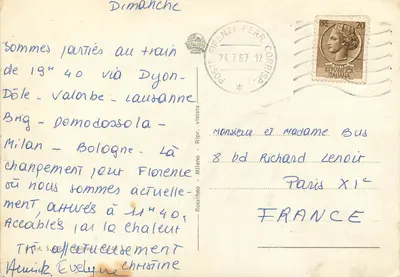 Dimanche
Sommes partis au train
de 19H 40 via Dyon-
Dôle - Valorbe - Lausanne
Brig - Domodossola -
Milan - Bologne. Là
changement pour Florence
où nous sommes actuelle-
ment, arrivés à 11H 40.
Accablés par la chaleur
TK affectueusement
Annick Evelyne Christine
POSTE FIRENZE FERR. CORRISP.
24.7.67. 12
Monsieur et Madame Bus
8 bd Richard Lenoir
Paris XIe
FRANCE